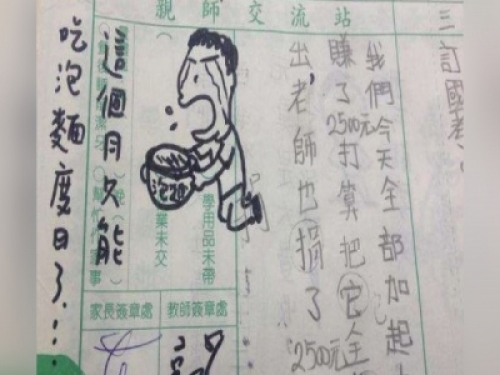 親師交流站
三訂國考、
我們今天全部加起
賺了2500元打算把它全
出,老師也捐了2500元
泡麵
學用品未帶
業未交
教師簽章處
家長簽章處
這個月只能
吃泡麵度日了....